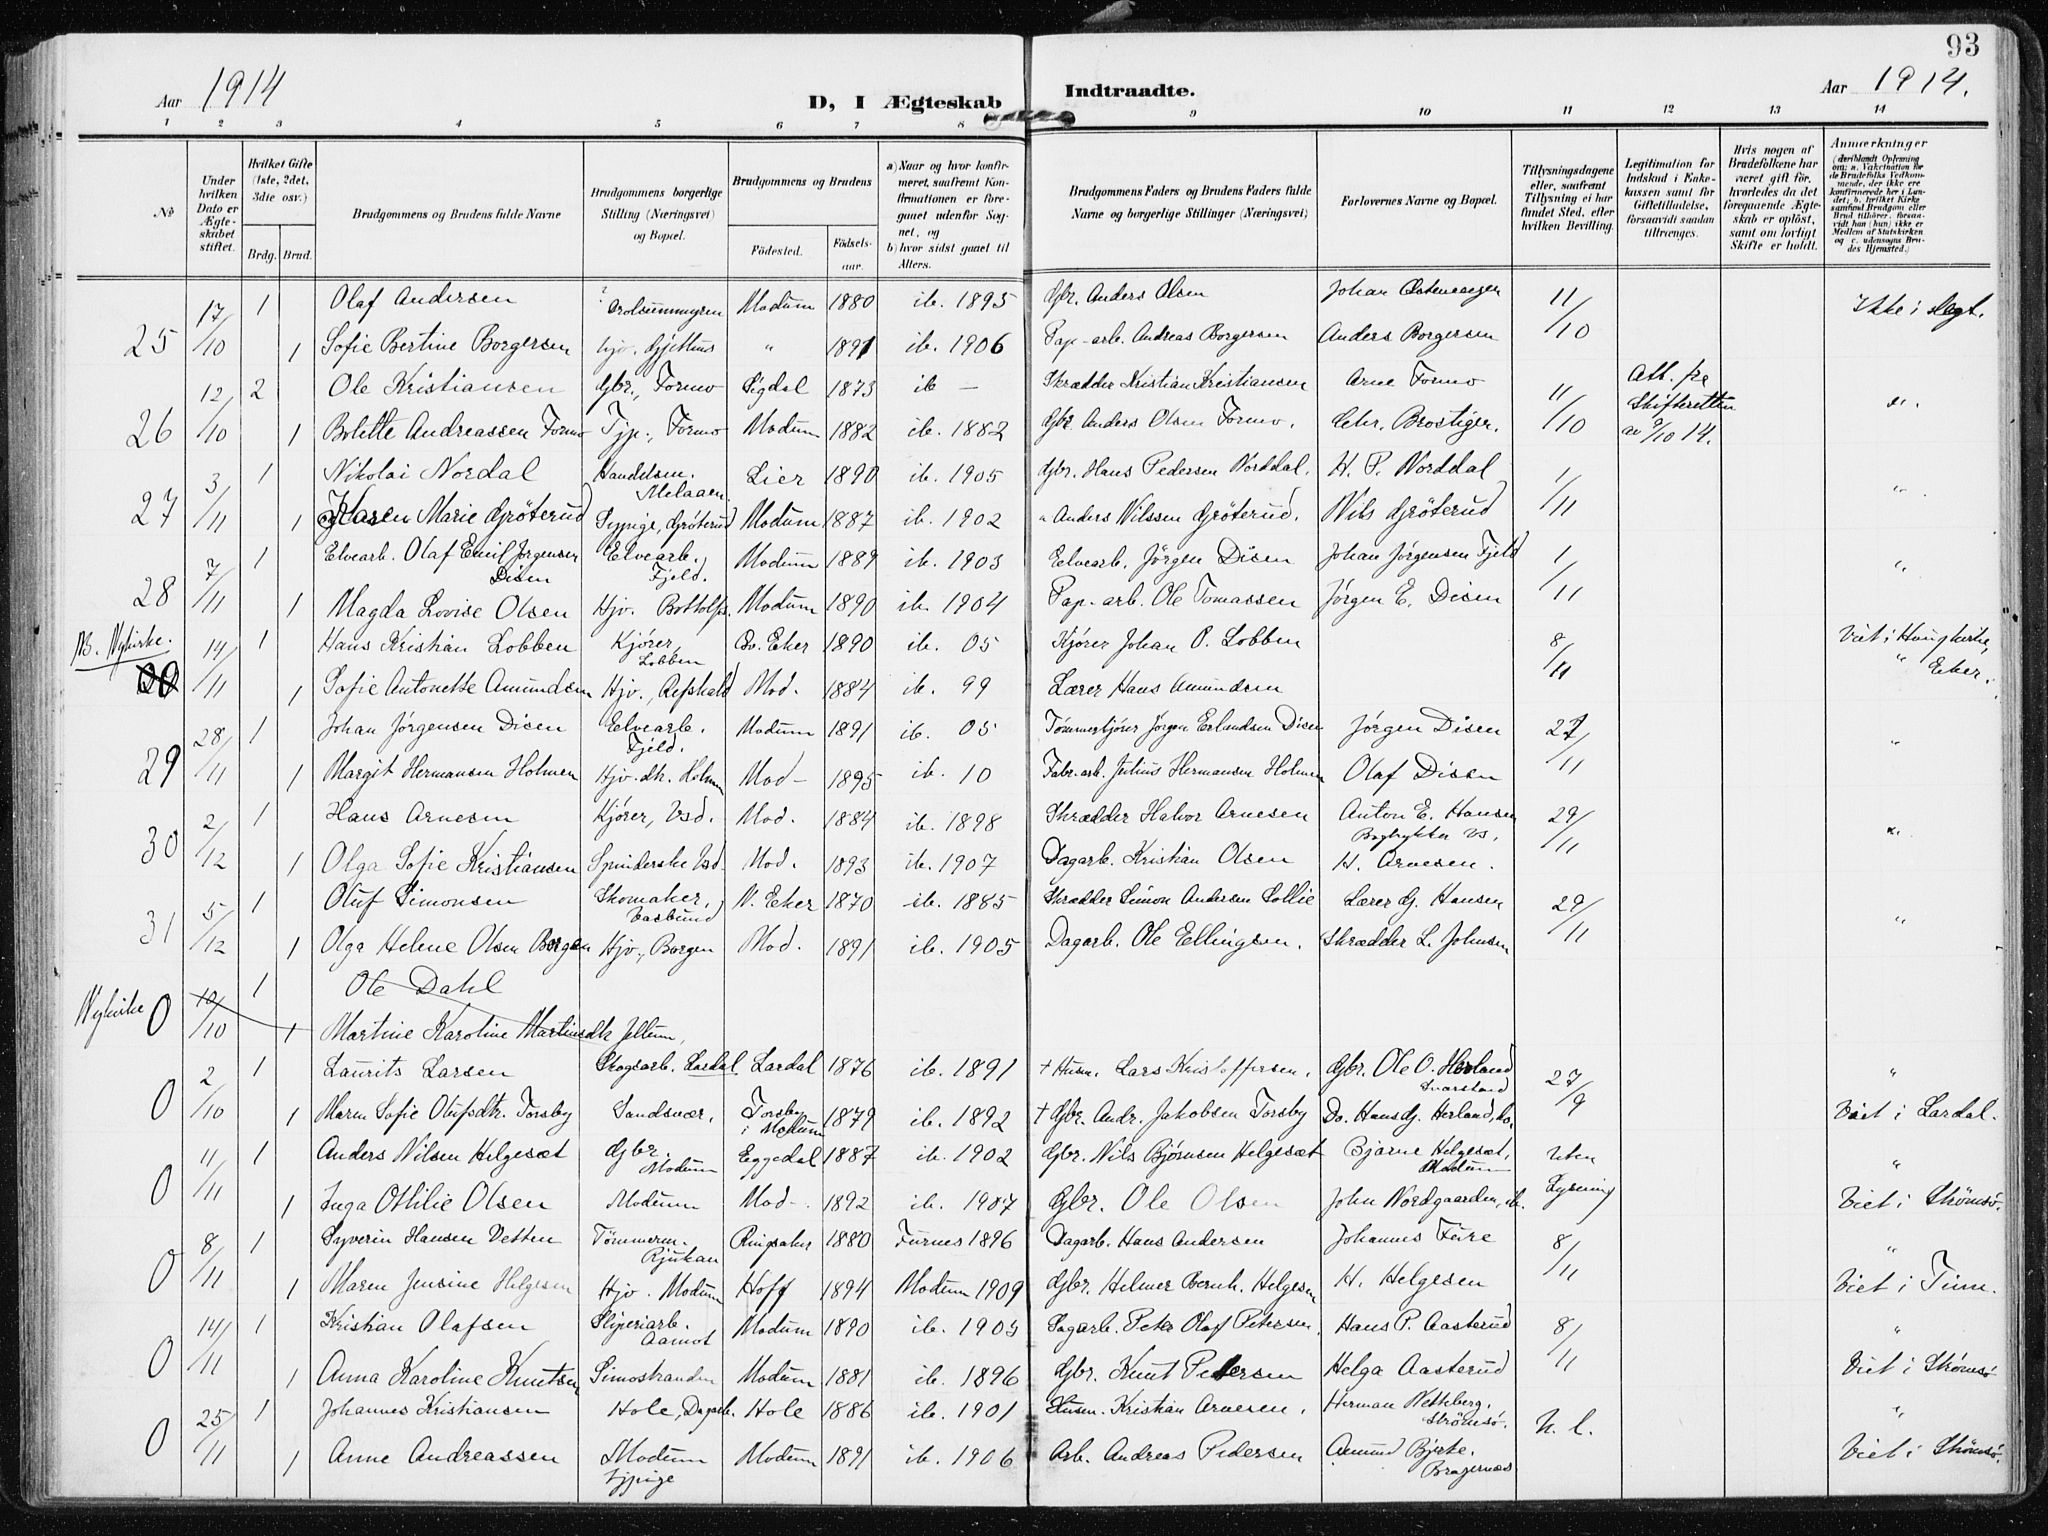 93
Aar 1914
D, I Ægteskab Indtraadte.
Aar 1914.
1 2 3 4 5 6 7 8 9 10 11 12 13 14
No
Under hvilken Dato er Ægteskabet stiftet.
Hvilket Gifte (1ste, 2det, 3die osv.)
Brdg. Brud.
Brudgommens og Brudens fulde Navne
Brudgommens borgerlige Stilling (Næringsvei) og Bopæl.
Brudgommens og Brudens
Fødested.
Fødselsaar.
a) Naar og hvor konfirmeret, saafremt Konfirmationen er foregaaet udenfor Sognet, og
b) hvor sidst gaaet til Alters.
Brudgommens Faders og Brudens Faders fulde Navne og borgerlige Stillinger (Næringsvei)
Forlovernes Navne og Bopæl.
Tillysningsdagene eller, saafremt Tillysning ei har fundet Sted, efter hvilken Bevilling.
Legitimation for Indskud i Enkekassen samt for Giftetilladelse, forsaavidt saadan tiltrænges.
Hvis nogen af Brudefolkene har været gift før, hvorledes da det foregaaende Ægteskab er opløst, samt om lovligt Skifte er holdt.
Anmærkninger
(deriblandt Oplysning om: a. Vakcination for de Brudefolks Vedkommende, der ikke ere konfirmerede her i Landet; b. hvilket Kirkesamfund Brudgom eller Brud tilhører, forsaavidt han (hun) ikke er Medlem af Statskirken og c. udensogns Brudes Hjemsted.)
25 17/10 1 Olaf Andersen Modum 1880 ib. 1895 Gbr. Anders Olsen Johan 11/10 Ikke i slegt.
1 Sofie Bertine Borgersen Hjv. Gjethus " 1891 ib. 1906 Pap-arb. Andreas Borgersen Anders Borgersen
26 12/10 2 Ole Kristiansen Gbr., Formo Sigdal 1873 ib — Skrædder Kristian Kristiansen Arne Formo 11/10 Att. fra Skifteretten av 9/10 14. "
1 Bolette Andreassen Formo Tjp., Formo Modum 1882 ib. 1882 Gbr. Anders Olsen Formo. Chr. Brostiger.
27 3/11 1 Nikolai Nordal Handelsm. Melaaen. Lier 1890 ib. 1905 Gbr. Hans Pedersen Norddal. H. P. Norddal 1/11 "
1 Karen Marie Gröterud Sypige, Gröterud Modum 1887 ib. 1902 " Anders Nilssen Gröterud. Nils Gröterud
28 7/11 1 Elvearb. Olaf Emil Jørgensen Disen Elvearb. Fjeld. Modum 1889 ib. 1903 Elvearb. Jörgen Disen Johan Jørgensen Fjeld 1/11 "
1 Magda Lovise Olsen Hjv. Bottolfs Modum 1890 ib. 1904 Pap-arb. Ole Tomassen Jørgen E. Disen
NB. Nykirke. 14/11 1 Hans Kristian Lobben Kjører, Lobben Øv. Eker 1890 ib. 05 Kjører Johan P. Lobben 8/11 Viet i Haugkirke,
1 Sofie Antonette Amundsen Hjv., Refshald Mod. 1884 ib. 99 Lærer Hans Amundsen " Eker.
29 28/11 1 Johan Jørgensen Disen Elvearb. Fjeld. Modum 1891 ib. 05 Tømmerkjører Jørgen Erlandsen Disen Jørgen Disen 27/11 "
1 Margit Hermansen Holmen Hjv. dk. Holmen Mod- 1895 ib. 10 Fabr-arb. Julius Hermansen Holmen Olaf Disen
30 2/12 1 Hans Arnesen Kjører, Vsd. Mod. 1884 ib. 1898 Skrædder Halvor Arnesen Anton E. Hansen Bogtrykker Vs, 29/11 "
1 Olga Sofie Kristiansen Spinderske Vsd. Mod. 1893 ib. 1907 Dagarb. Kristian Olsen H. Arnesen.
31 5/12 1 Oluf Simonsen Skomaker, Vasbund N. Eker 1870 ib. 1885 Skrædder Simon Andersen Sollie Lærer G. Hansen 29/11 "
1 Olga Helene Olsen Borgen Hjv., Borgen Mod. 1891 ib. 1905 Dagarb. Ole Ellingsen. Skrædder L. Johnsen
Nykirke 0 10/10 1 Ole Dahl
1 Martine Karoline Martinsdk Jellum,
0 2/10 1 Laurits Larsen Skogsarb. Lardal Lardal 1876 ib. 1891 + Husm. Lars Kristoffersen. Gbr. Ole O. Herland Svarstad 27/9 "
1 Maren Sofie Olufsdtr. Torsby Sandsvær, Torsby i Modum 1879 ib. 1892 + Gbr. Andr. Jakobsen Torsby Do. Hans G. Herland, do. Viet i Lardal.
0 11/11 1 Anders Nilsen Helgesæt Gbr. Modum Eggedal 1887 ib. 1902 Gbr. Nils Bjørnsen Helgesæt Bjarne Helgesæt, Modum Uten Lysning "
1 Inga Othilie Olsen Modum Mod-. 1892 ib. 1907 Gbr. Ole Olsen John Nordgaarden, ib. Viet i Strømsø.
0 8/11 1 Syverin Hansen Vetten Tömmerm. Rjukan Ringsaker 1880 Furnes 1896 Dagarb. Hans Andersen Johannes Føre 8/11 "
1 Maren Jensine Helgesen Hjv. Modum Hoff 1894 Modum 1909 Gbr. Helmer Bernh. Helgesen H. Helgesen Viet i Tinn.
0 14/11 1 Kristian Olafsen Sliperiarb. Aamot Modum 1890 ib. 1905 Sagarb. Peter Olaf Petersen. Hans P. Aasterud 8/11 "
1 Anna Karoline Knutsen Simostranden Modum 1881 ib. 1896 Gbr. Knut Pedersen Helga Aasterud Viet i Strømsø
0 25/11 1 Johannes Kristiansen Hole, Dagarb. Hole 1886 ib. 1901 Husm. Kristian Arnesen. Herman Wethberg, Strömsö. U. l. "
1 Anne Andreassen Modum Sypige Modum 1891 ib. 1906 Arb. Andreas Pedersen Amund Bjerke. Bragernæs Viet i Strømsø.